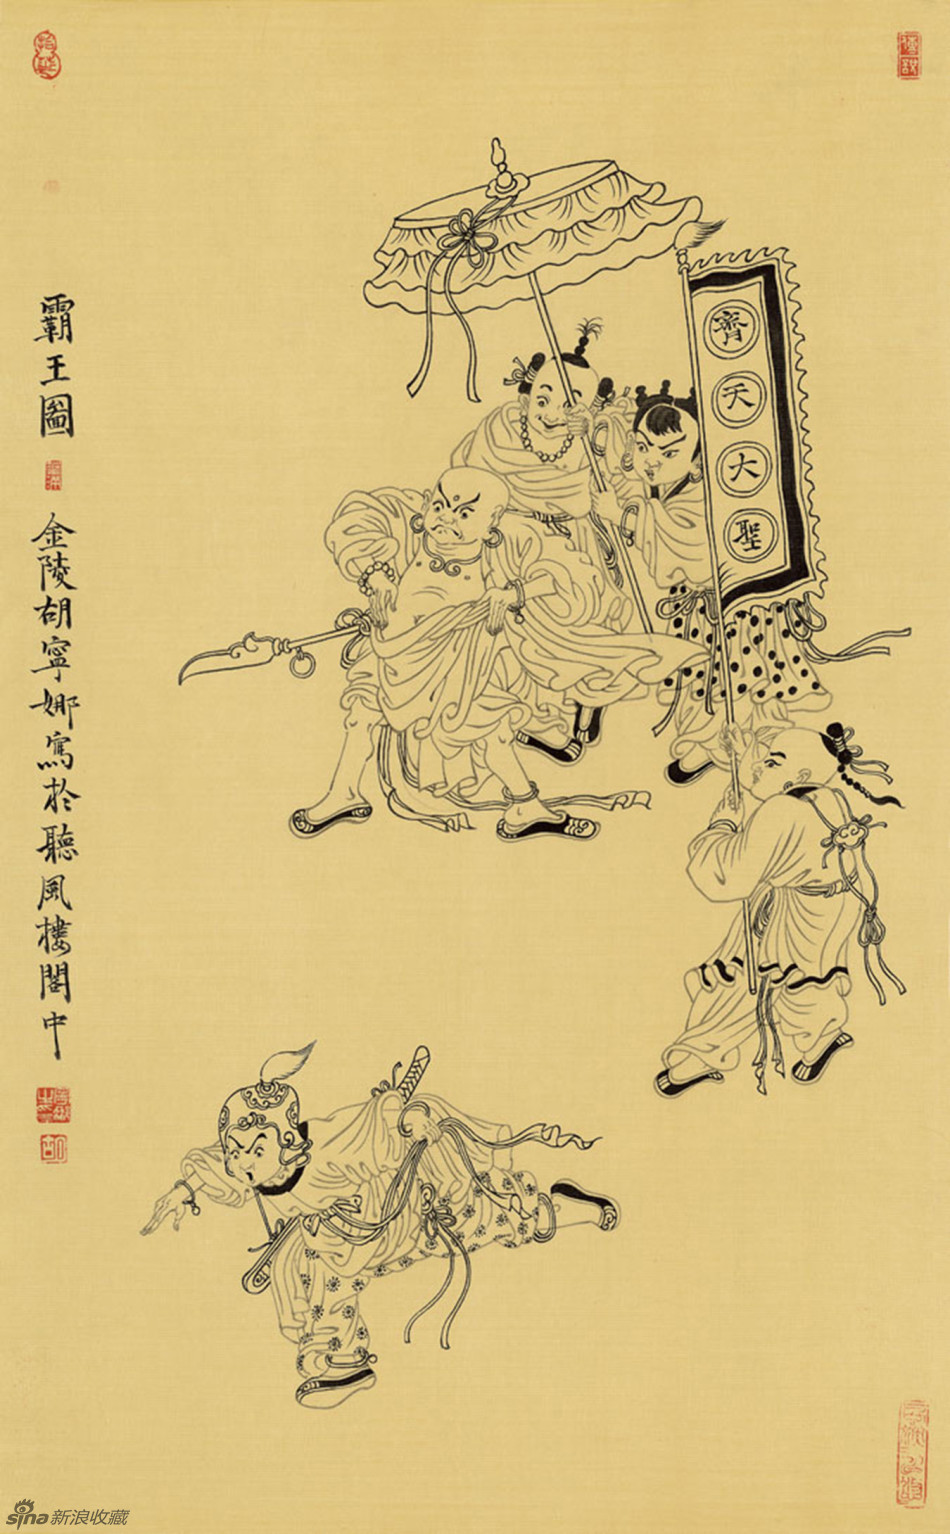 齊天大聖
霸王圖
金陵胡寧娜寫於聽風樓閣中
sina新浪收藏